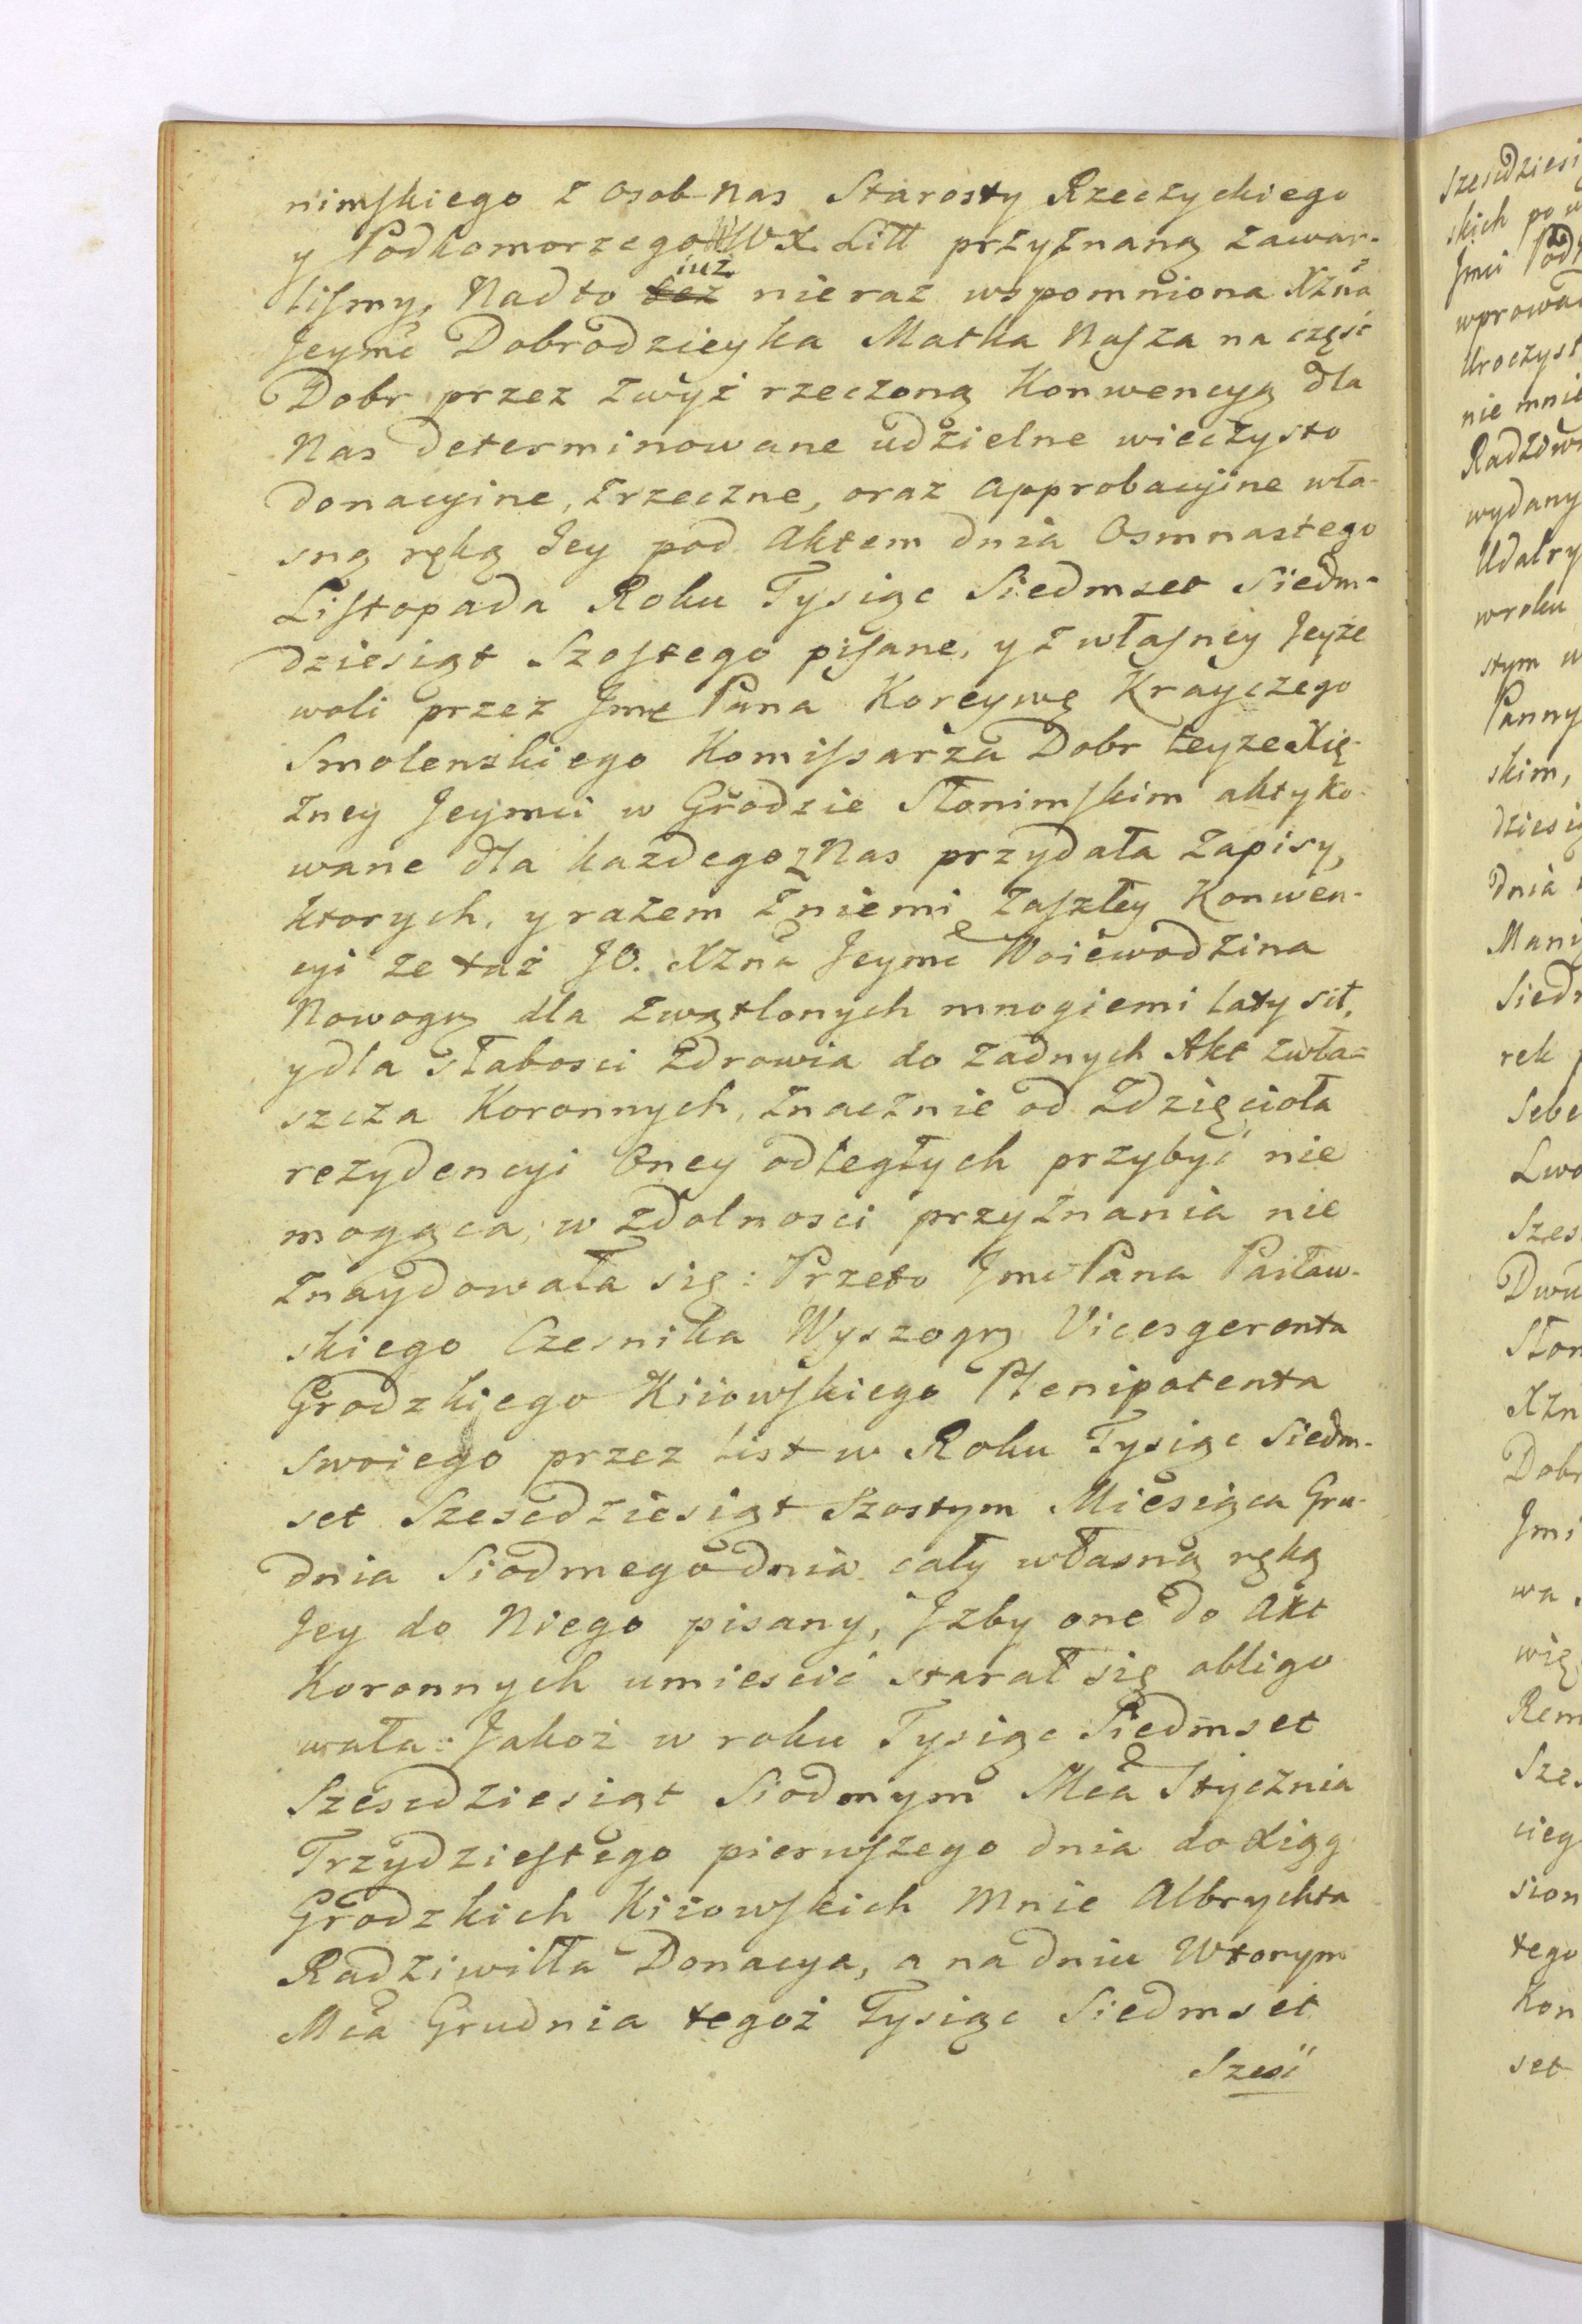 nimskiego z osob Nas Starosty Rzeczyckiego
y Podkomorzego W X. Litt przyznaną zawar-
liśmy, Nadto też już nieraz wspomniona Xżna
Jeymć Dobrodzieyka Matka Nasza na część
Dobr przez zwyż rzeczoną Konwencyą dla
Nas determinowane udzielne wieczysto
donacyine, zrzeczne, oraz approbacyine wła-
sną ręką Jey pod Aktem dnia Osmnastego
Listopada Roku Tysiąc Siedmset Siedm-
dziesiąt Szostego pisane, y z własney Jeyże
woli przez Jmć Pana Koreywę Krayczego
Smolenskiego Komissarza Dobr teyże Xię-
żney Jeymci w Grodzie Słonimskim aktyko-
wane dla każdego z Nas przydała Zapisy,
ktorych, y razem z niemi zaszłey Konwen-
cyi że taż JO. Xżna Jeymć Woiewodzina
Nowogg dla zwątlonych mnogiemi laty sił,
y dla słabosci zdrowia do żadnych Akt zwła-
szcza Koronnych, znacznie od Zdzięcioła
rezydencyi Oney odległych przybyć nie
mogąca, w zdolnosci przyznania nie
znaydowała się: Przeto Jmć Pana Pasław-
skiego Czesnika Wyszogg Vicesgerenta
Grodzkiego Kiiowskiego Plenipotenta
swoiego przez List w Roku Tysiąc Siedm-
set Szescdziesiąt Szostym Miesiąca Gru-
dnia Siodmego dnia cały własną ręką
Jey do Niego pisany, Jżby one do Akt
Koronnych umiescić starał się obligo
wała: Jakoż w roku Tysiąc Siedmset
Szescdziesiąt Siodmym Mca Stycznia
Trzydziestego pierwszego dnia do Xiąg
Grodzkich Kiiowskich Mnie Albrychta
Radziwiłła Donacya, a na dniu Wtorym
Mca Grudnia tegoż Tysiąc Siedmset
Sześć
Szescdziesi
skich po
Jmci Pod
wprowad
Uroczyst
nie mnie
Radziw
wydany
Udalry
w roku
stym w
Panny
skim,
dziesią
dnia
Mani
Siedm
rek
Sebe
Lwo
Szes
Dwu
Słon
Xżn
Dobr
Jmi
wa
wię
Rem
Szes
cieg
sion
tego
Kon
set